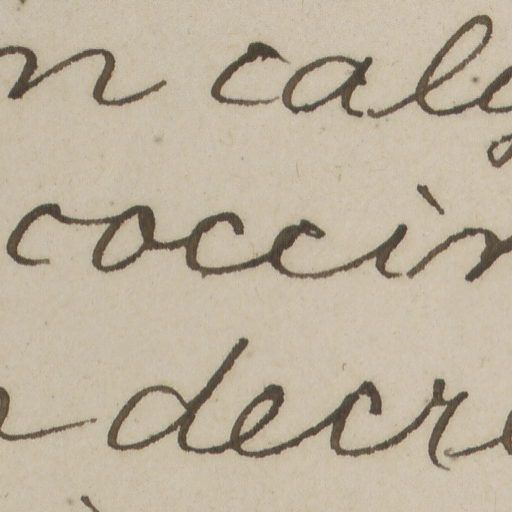 n caly
coccin
decre